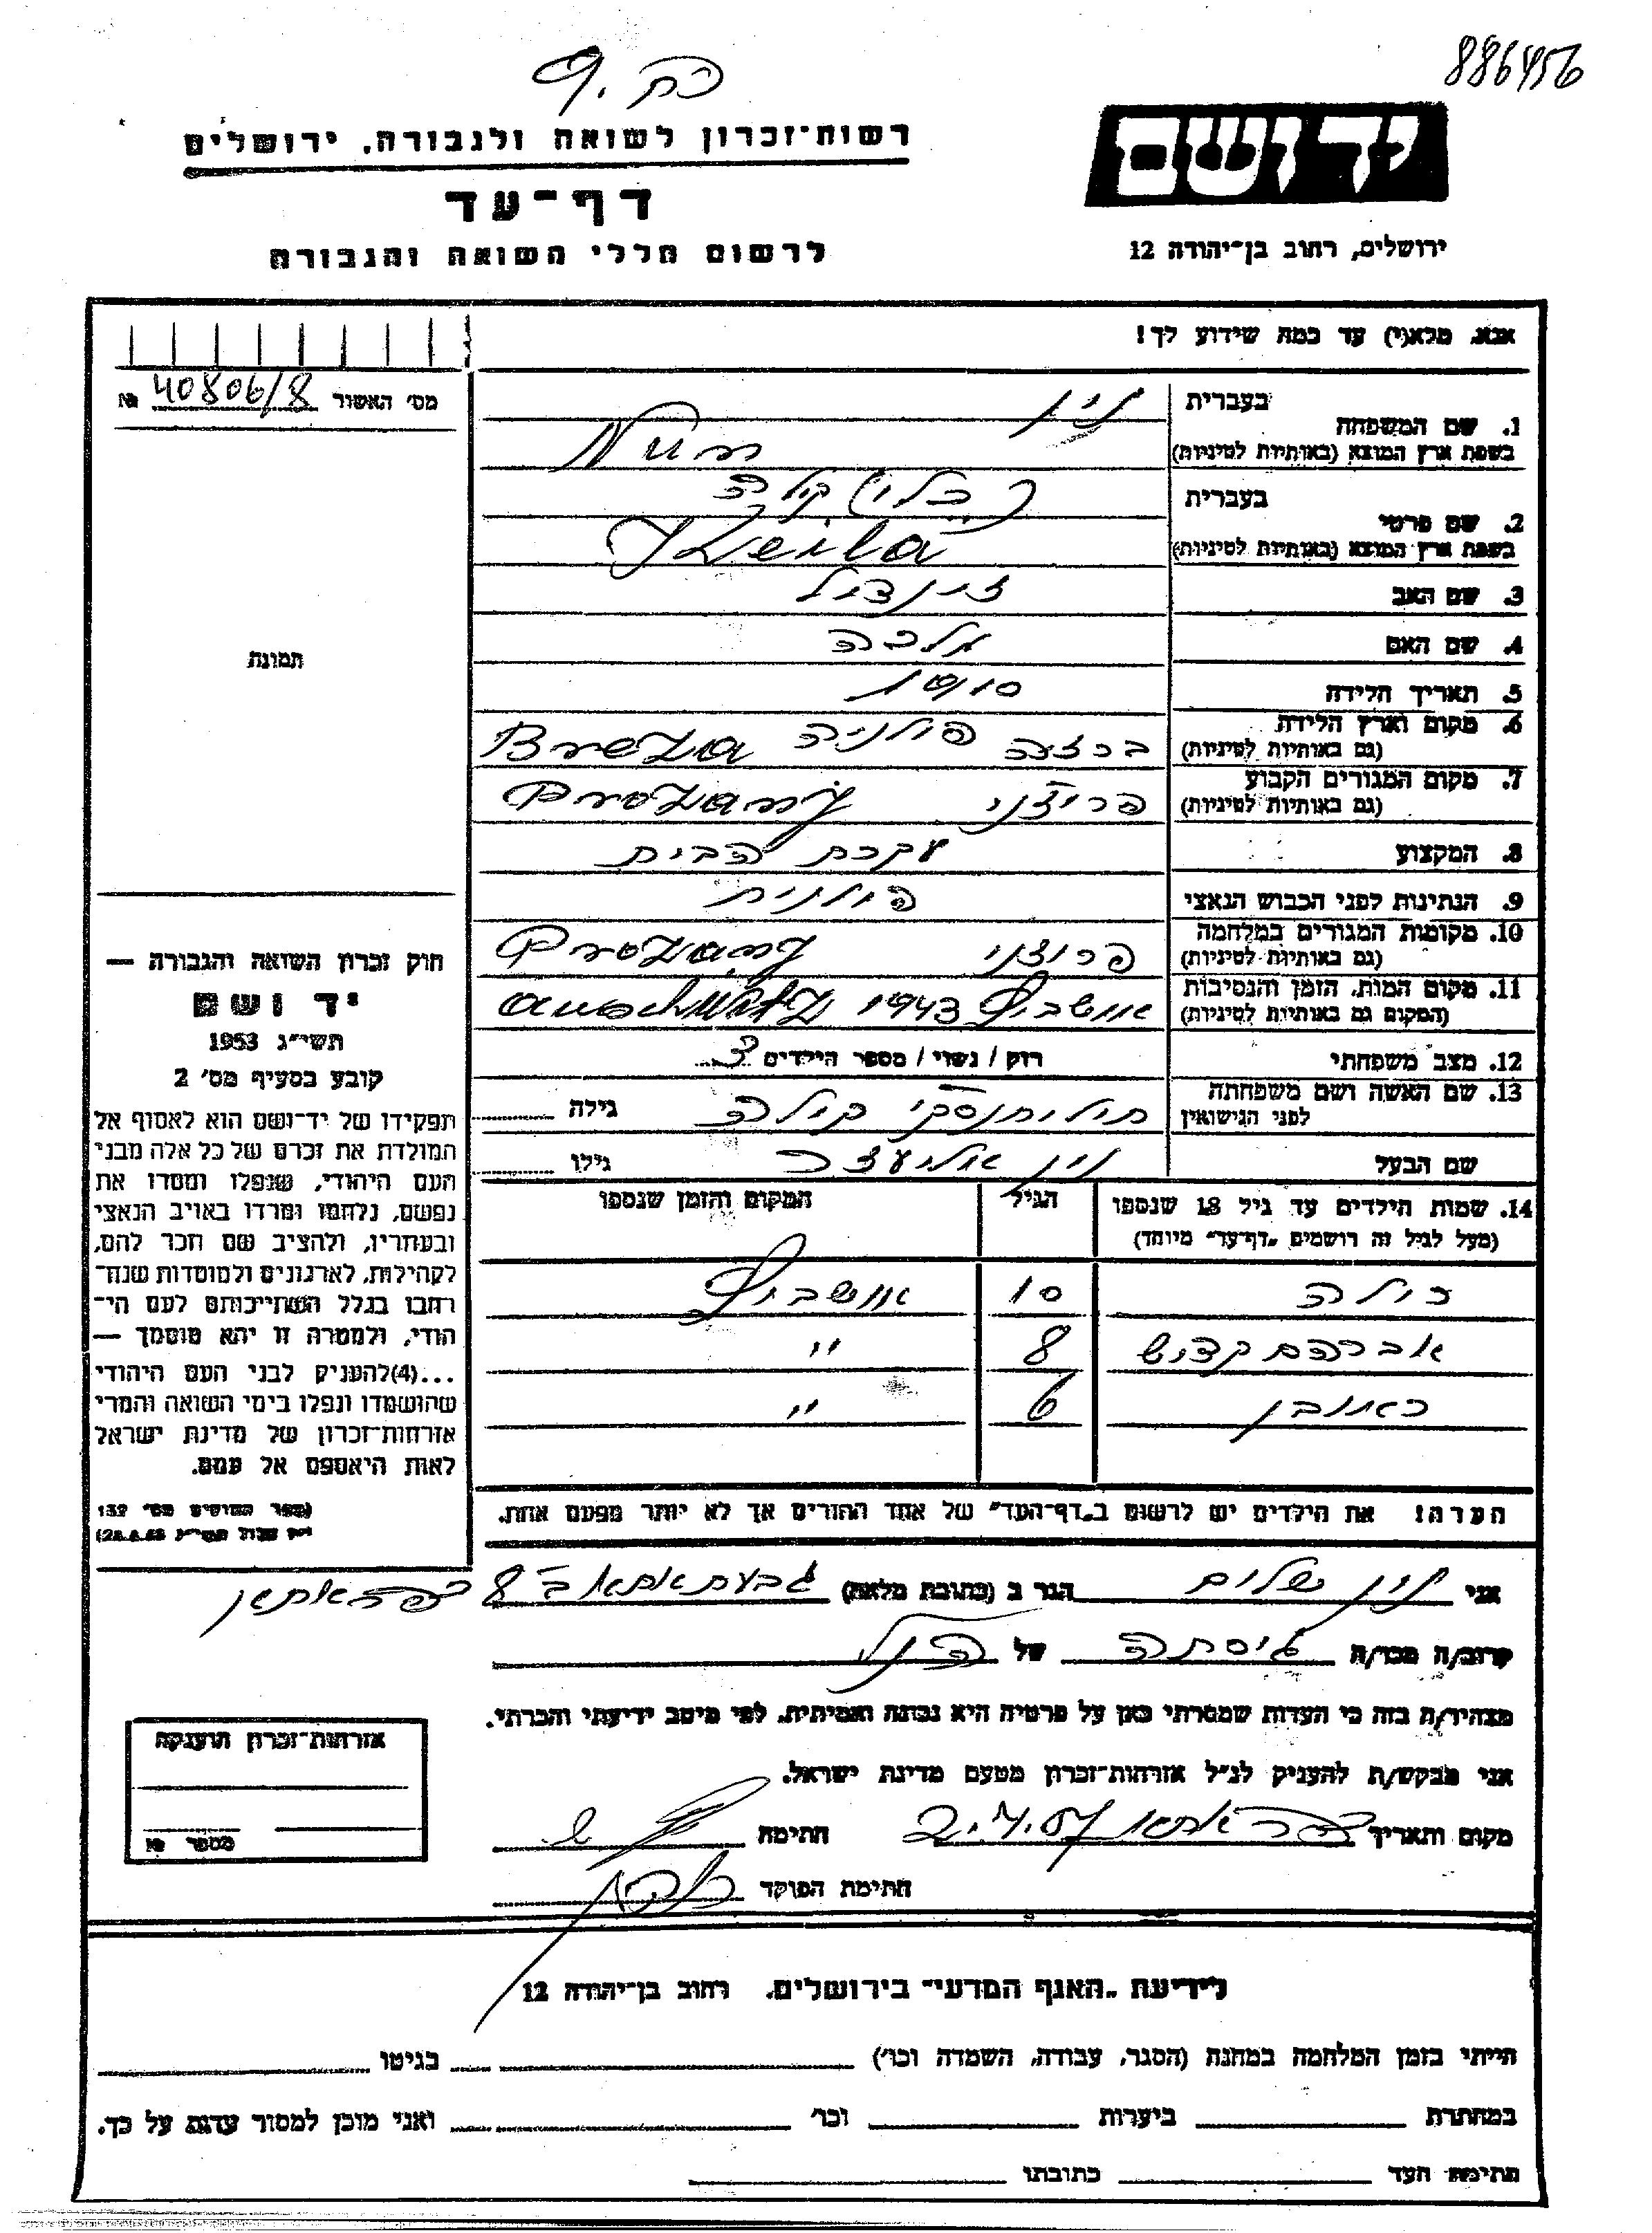 886456
יד ושם
ירושלים, רחוב בן־יהודה 12
רשות־זכרון לשואה ולגבורה, ירושלים
דף־עד
לרשום חללי השואה והגבורה
אנא, מלא(י) עד כמה שידוע לך!
מס׳ האשור 40806/8 №
תמונת
1. שם המשפחה
בעברית נון
בשפת ארץ המוצא (באותיות לטיניות) Nun
2. שם פרטי
בעברית קילה
בשפת ארץ המוצא (באותיות לטיניות) Keila
3. שם האב זינדיל
4. שם האם מלכה
5. תאריך הלידה 1910
6. מקום וארץ הלידה (גם באותיות לטיניות) ברזה פולניה Breza
7. מקום המגורים הקבוע (גם באותיות לטיניות) פרוז׳ני Prozany
8. המקצוע עקרת הבית
9. הנתינות לפני הכבוש הנאצי פולנית
10. מקומות המגורים במלחמה (גם באותיות לטיניות) פרוז׳ני Prozany
11. מקום המות, הזמן והנסיבות (המקום גם באותיות לטיניות) אושביץ 1943 auschwitz
12. מצב משפחתי רווק / נשוי / מספר הילדים 3
13. שם האשה ושם משפחתה לפני הנישואין קילה גילה
שם הבעל נון אליעזר גילו
14. שמות הילדים עד גיל 18 שנספו
(מעל לגיל זה רושמים „דף־עד״ מיוחד)
הגיל
המקום והזמן שנספו
10 אושביץ
אברהם קדיש 8 "
ראובן 6 "
הערה! את הילדים יש לרשום ב„דף־העד״ של אחד ההורים אך לא יותר מפעם אחת.
חוק זכרון השואה והגבורה —
יד ושם
תשי״ג 1953
קובע בסעיף מס׳ 2
תפקידו של יד־ושם הוא לאסוף אל
המולדת את זכרם של כל אלה מבני
העם היהודי, שנפלו ומסרו את
נפשם, נלחמו ומרדו באויב הנאצי
ובעוזריו, ולהציב שם וזכר להם,
לקהילות, לארגונים ולמוסדות שנח־
רבו בגלל השתייכותם לעם הי־
הודי, ולמטרה זו יהא מוסמך —
...(4) להעניק לבני העם היהודי
שהושמדו ונפלו בימי השואה והמרי
אזרחות־זכרון של מדינת ישראל
לאות היאספם אל עמם.
(ספר החוקים מס׳ 132
אני נון שלום הגר ב (כתובת מלאה) גבעת אתא ב׳ 8 כפר אתא
קרוב/ה מכר/ה גיסתה של הנ״ל
מצהיר/ה בזה כי העדות שמסרתי כאן על פרטיה היא נכונה ואמיתית, לפי מיטב ידיעתי והכרתי.
אני מבקש/ת להעניק לנ״ל אזרחות־זכרון מטעם מדינת ישראל.
מקום ותאריך כפר אתא 2.4.57 חתימה
חתימת הפוקד
אזרחות־זכרון הוענקה
מספר №
לידיעת „האגף המדעי״ בירושלים, רחוב בן־יהודה 12
הייתי בזמן המלחמה במחנה (הסגר, עבודה, השמדה וכו׳) בגיטו
במחתרת ביערות וכו׳ ואני מוכן למסור עדות על כך.
חתימת העד כתובתו